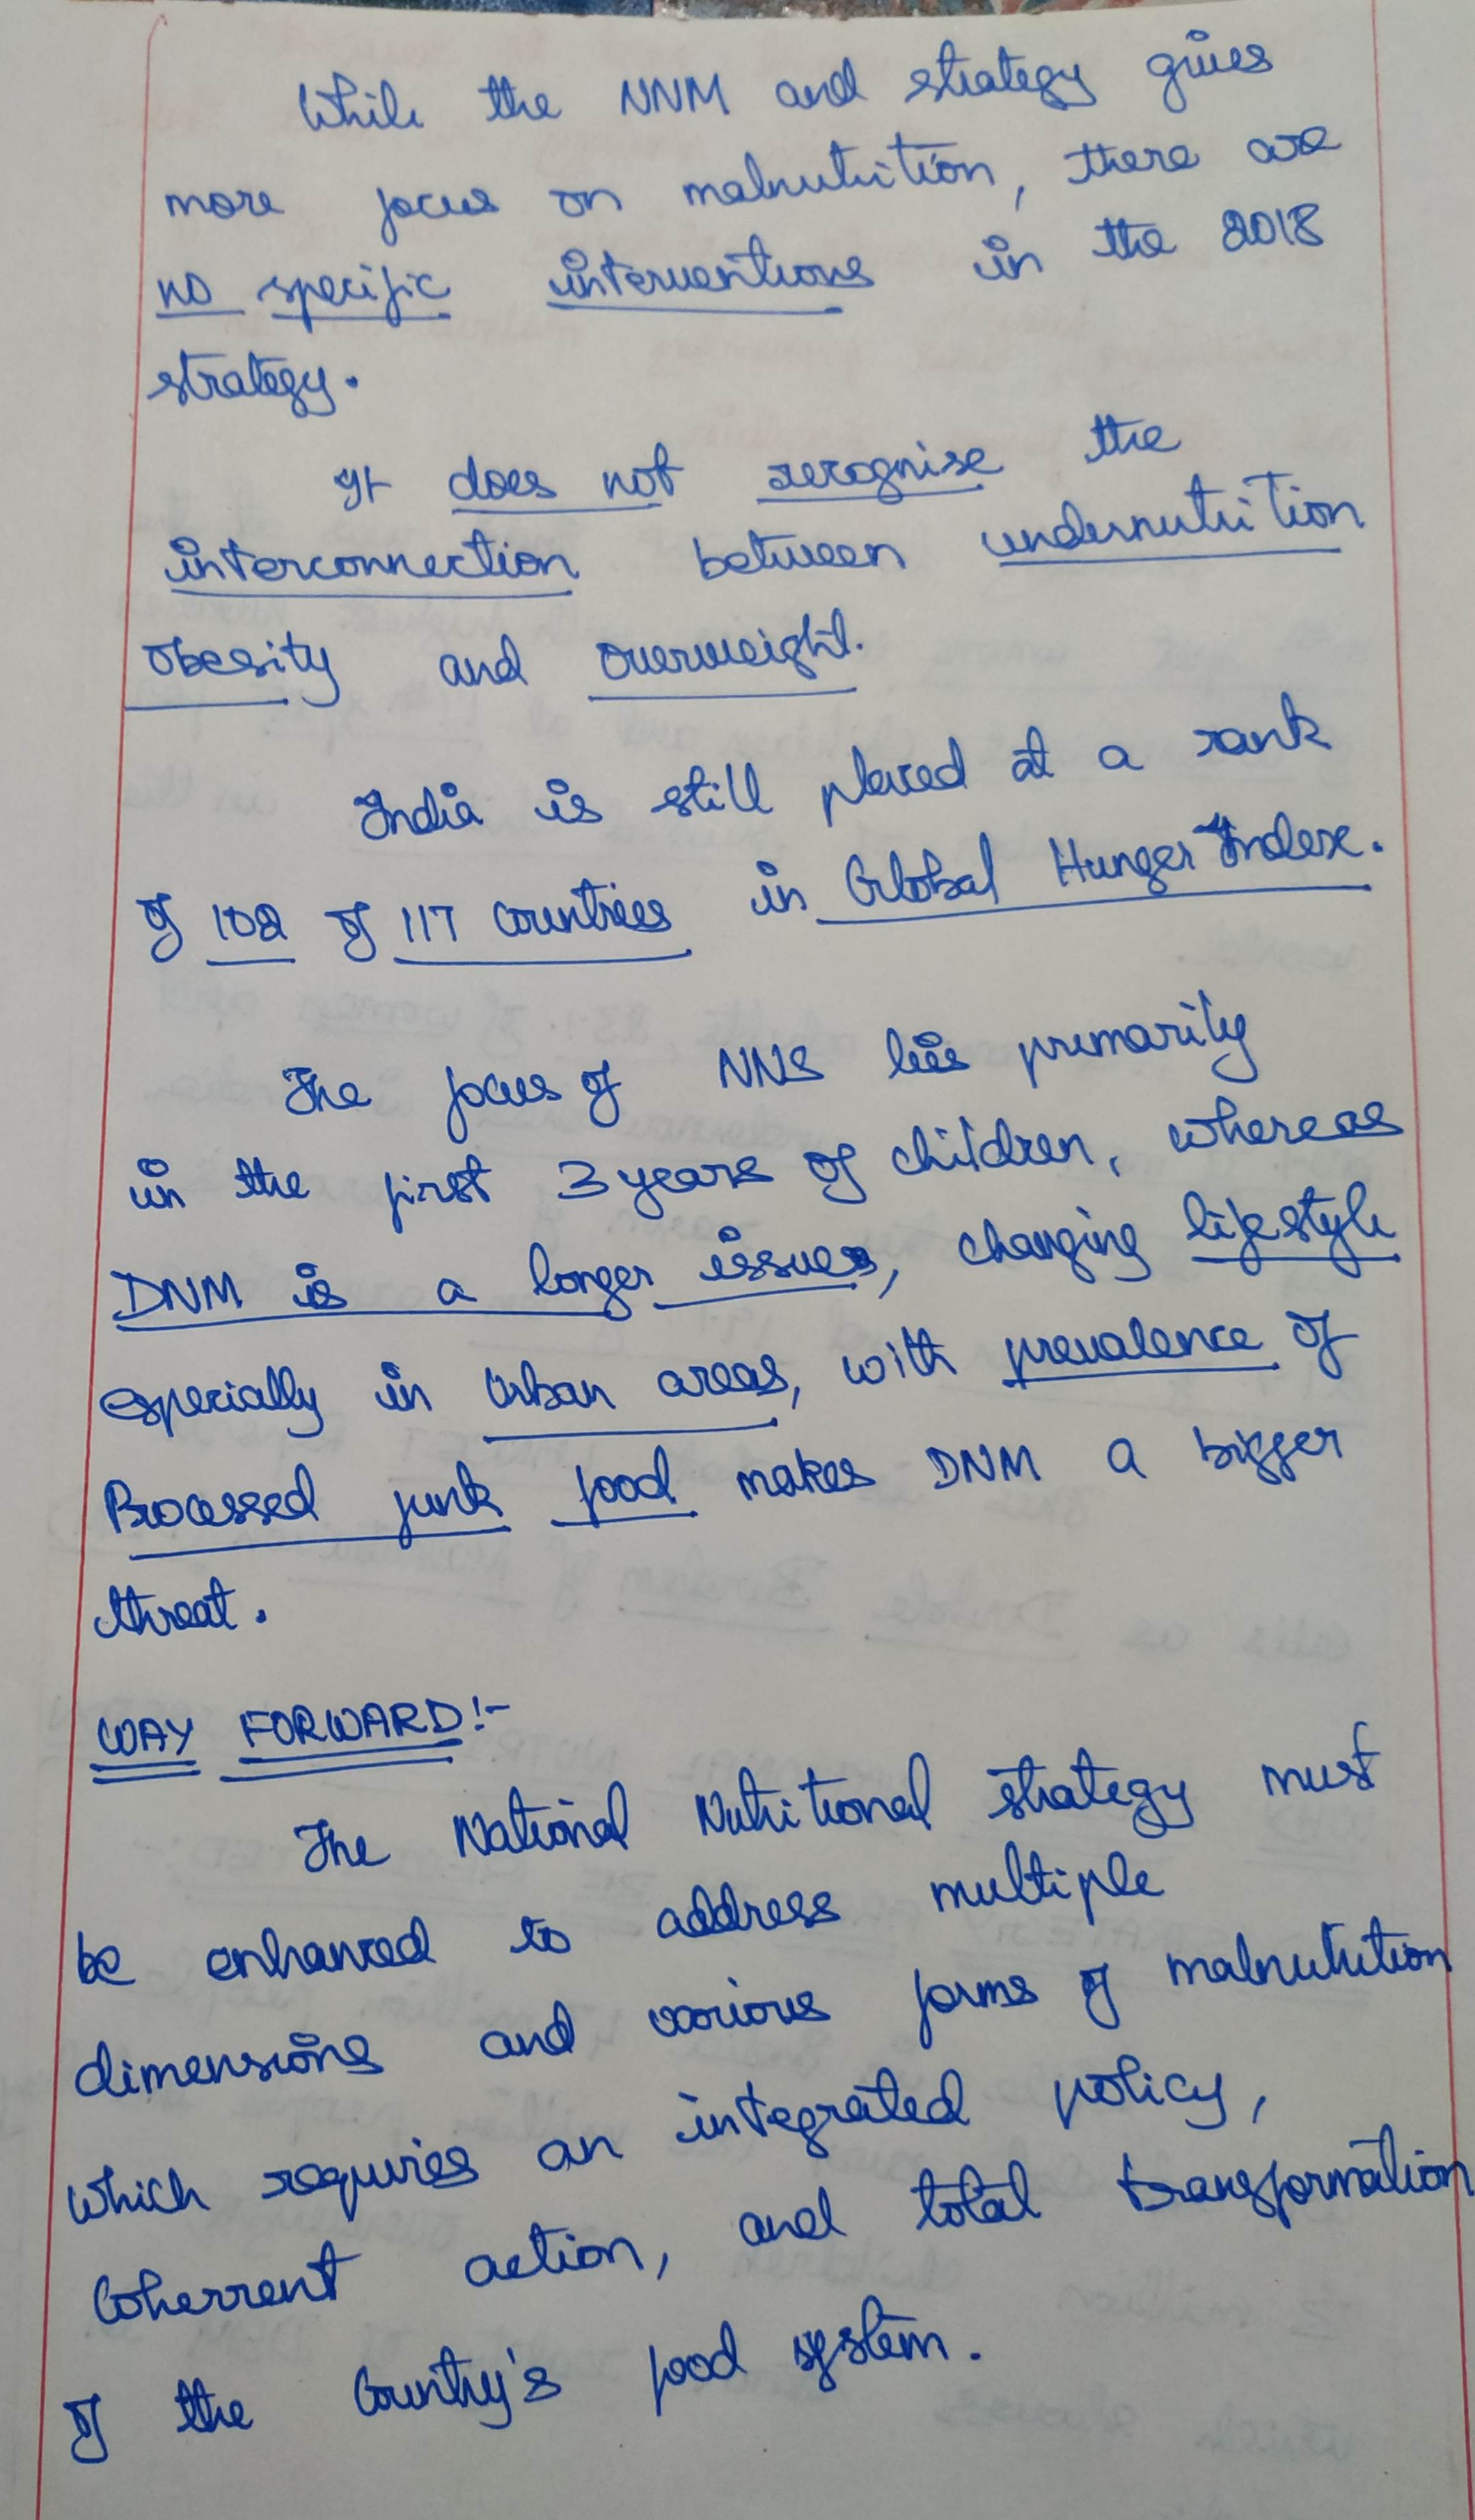 While the NNM and strategy gives
more focus on malnutrition, there are
no specific interventions in the 2018
strategy.
It does not recognise the
interconnection between undernutrition
obesity and overweight.
India is still placed at a rank
of 102 of 117 countries in Global Hunger Index.
The focus of NNS lies primarily
in the first 3 years of children, whereas
DNM is a longer issue, changing lifestyle
especially in Urban areas, with prevalence of
Processed junk food makes DNM a bigger
threat.
WAY FORWARD:-
The National Nutritional strategy must
be enhanced to address multiple
dimensions and various forms of malnutrition
which requires an integrated policy,
Coherrent action, and total transformation
of the Country's food system.